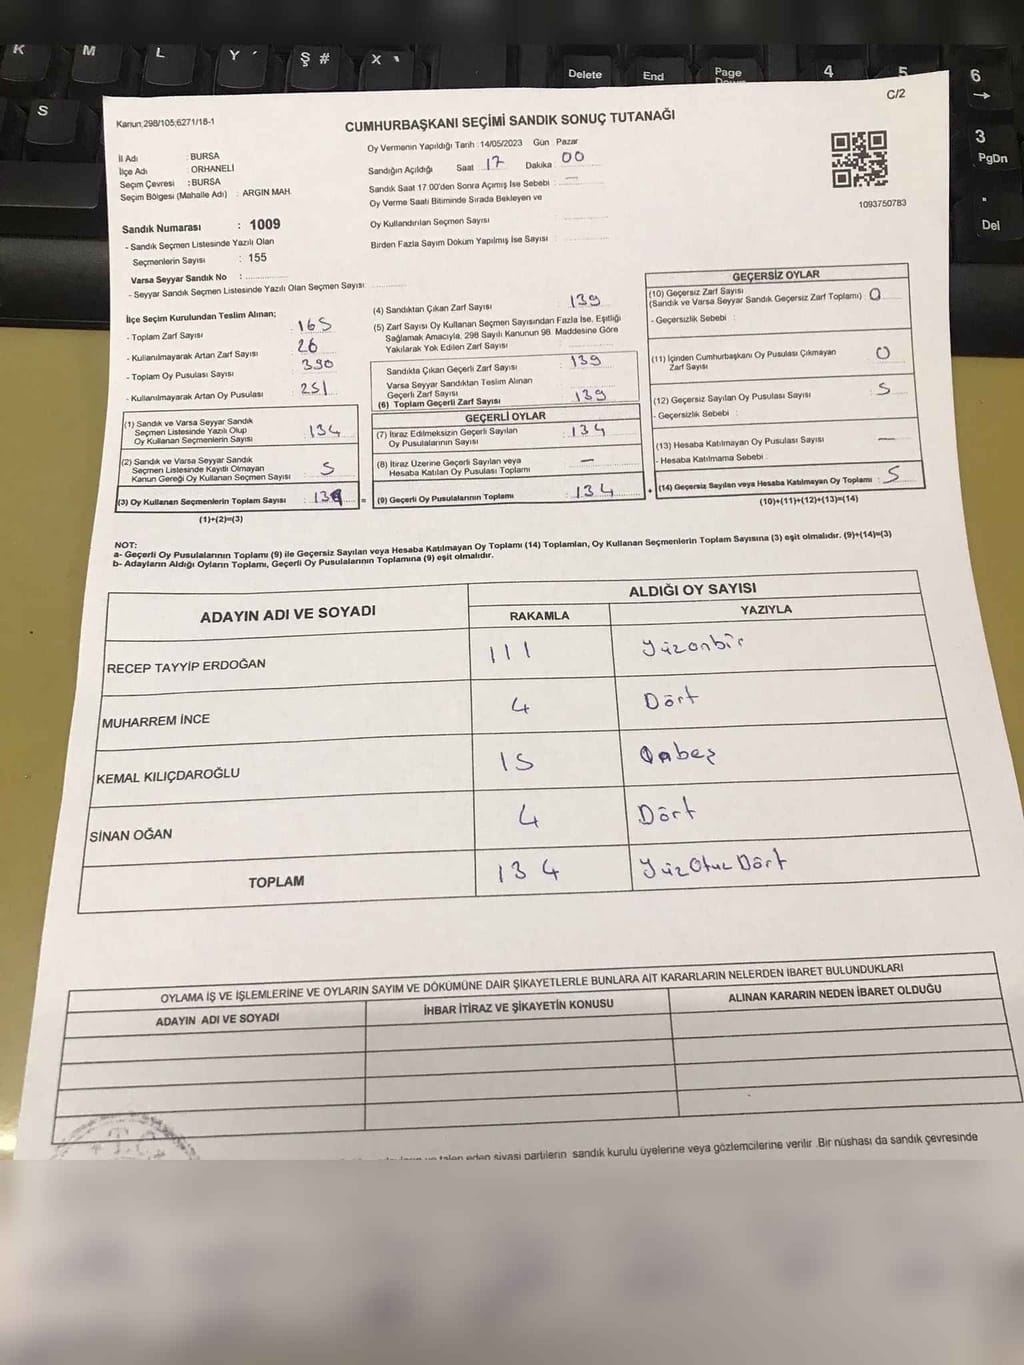 K M L Y Ş # X Delete End Page Down 4 5 6
S
3 PgDn
Del
C/2
Kanun;298/105;6271/18-1
CUMHURBAŞKANI SEÇİMİ SANDIK SONUÇ TUTANAĞI
İl Adı : BURSA
İlçe Adı : ORHANELİ
Seçim Çevresi : BURSA
Seçim Bölgesi (Mahalle Adı) : ARGIN MAH.
Oy Vermenin Yapıldığı Tarih :14/05/2023 Gün : Pazar
Sandığın Açıldığı Saat : 17 Dakika : 00
Sandık Saat 17:00'den Sonra Açımış İse Sebebi : —
Oy Verme Saati Bitiminde Sırada Bekleyen ve
Oy Kullandırılan Seçmen Sayısı
Birden Fazla Sayım Döküm Yapılmış İse Sayısı
1093750783
Sandık Numarası : 1009
- Sandık Seçmen Listesinde Yazılı Olan
Seçmenlerin Sayısı : 155
Varsa Seyyar Sandık No :
- Seyyar Sandık Seçmen Listesinde Yazılı Olan Seçmen Sayısı:
İlçe Seçim Kurulundan Teslim Alınan;
- Toplam Zarf Sayısı : 165
- Kullanılmayarak Artan Zarf Sayısı : 26
- Toplam Oy Pusulası Sayısı : 390
- Kullanılmayarak Artan Oy Pusulası : 251
(1) Sandık ve Varsa Seyyar Sandık
Seçmen Listesinde Yazılı Olup
Oy Kullanan Seçmenlerin Sayısı : 134
(2) Sandık ve Varsa Seyyar Sandık
Seçmen Listesinde Kayıtlı Olmayan
Kanun Gereği Oy Kullanan Seçmen Sayısı : 5
(3) Oy Kullanan Seçmenlerin Toplam Sayısı : 139 =
(1)+(2)=(3)
(4) Sandıktan Çıkan Zarf Sayısı : 139
(5) Zarf Sayısı Oy Kullanan Seçmen Sayısından Fazla İse, Eşitliği
Sağlamak Amacıyla, 298 Sayılı Kanunun 98. Maddesine Göre
Yakılarak Yok Edilen Zarf Sayısı
Sandıkta Çıkan Geçerli Zarf Sayısı : 139
Varsa Seyyar Sandıktan Teslim Alınan
Geçerli Zarf Sayısı
(6) Toplam Geçerli Zarf Sayısı : 139
GEÇERLİ OYLAR
(7) İtiraz Edilmeksizin Geçerli Sayılan
Oy Pusulalarının Sayısı : 134
(8) İtiraz Üzerine Geçerli Sayılan veya
Hesaba Katılan Oy Pusulası Toplamı : —
(9) Geçerli Oy Pusulalarının Toplamı : 134 +
GEÇERSİZ OYLAR
(10) Geçersiz Zarf Sayısı
(Sandık ve Varsa Seyyar Sandık Geçersiz Zarf Toplamı) : 0
- Geçersizlik Sebebi :
(11) İçinden Cumhurbaşkanı Oy Pusulası Çıkmayan
Zarf Sayısı : 0
(12) Geçersiz Sayılan Oy Pusulası Sayısı : 5
- Geçersizlik Sebebi :
(13) Hesaba Katılmayan Oy Pusulası Sayısı : —
- Hesaba Katılmama Sebebi :
(14) Geçersiz Sayılan veya Hesaba Katılmayan Oy Toplamı : 5
(10)+(11)+(12)+(13)=(14)
NOT:
a- Geçerli Oy Pusulalarının Toplamı (9) ile Geçersiz Sayılan veya Hesaba Katılmayan Oy Toplamı (14) Toplamları, Oy Kullanan Seçmenlerin Toplam Sayısına (3) eşit olmalıdır. (9)+(14)=(3)
b- Adayların Aldığı Oyların Toplamı, Geçerli Oy Pusulalarının Toplamına (9) eşit olmalıdır.
ADAYIN ADI VE SOYADI ALDIĞI OY SAYISI
RAKAMLA YAZIYLA
RECEP TAYYİP ERDOĞAN 111 Yüzonbir
MUHARREM İNCE 4 Dört
KEMAL KILIÇDAROĞLU 15 Onbeş
SİNAN OĞAN 4 Dört
TOPLAM 134 YüzOtuzDört
OYLAMA İŞ VE İŞLEMLERİNE VE OYLARIN SAYIM VE DÖKÜMÜNE DAİR ŞİKAYETLERLE BUNLARA AİT KARARLARIN NELERDEN İBARET BULUNDUKLARI
ADAYIN ADI VE SOYADI İHBAR İTİRAZ VE ŞİKAYETİN KONUSU ALINAN KARARIN NEDEN İBARET OLDUĞU
T.C.
talep eden siyasi partilerin sandık kurulu üyelerine veya gözlemcilerine verilir .Bir nüshası da sandık çevresinde